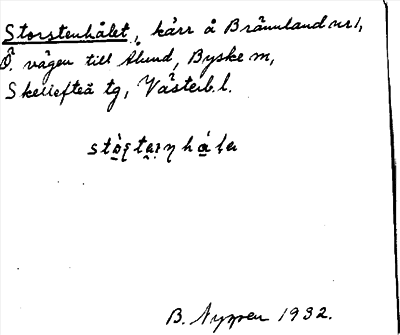 Storstenhålet, kärr å Brännland nr 1,
Ö. vägen till Ålund, Byske sn,
Skellefteå tg, Västerb. l.
B. Nyppen 1932.